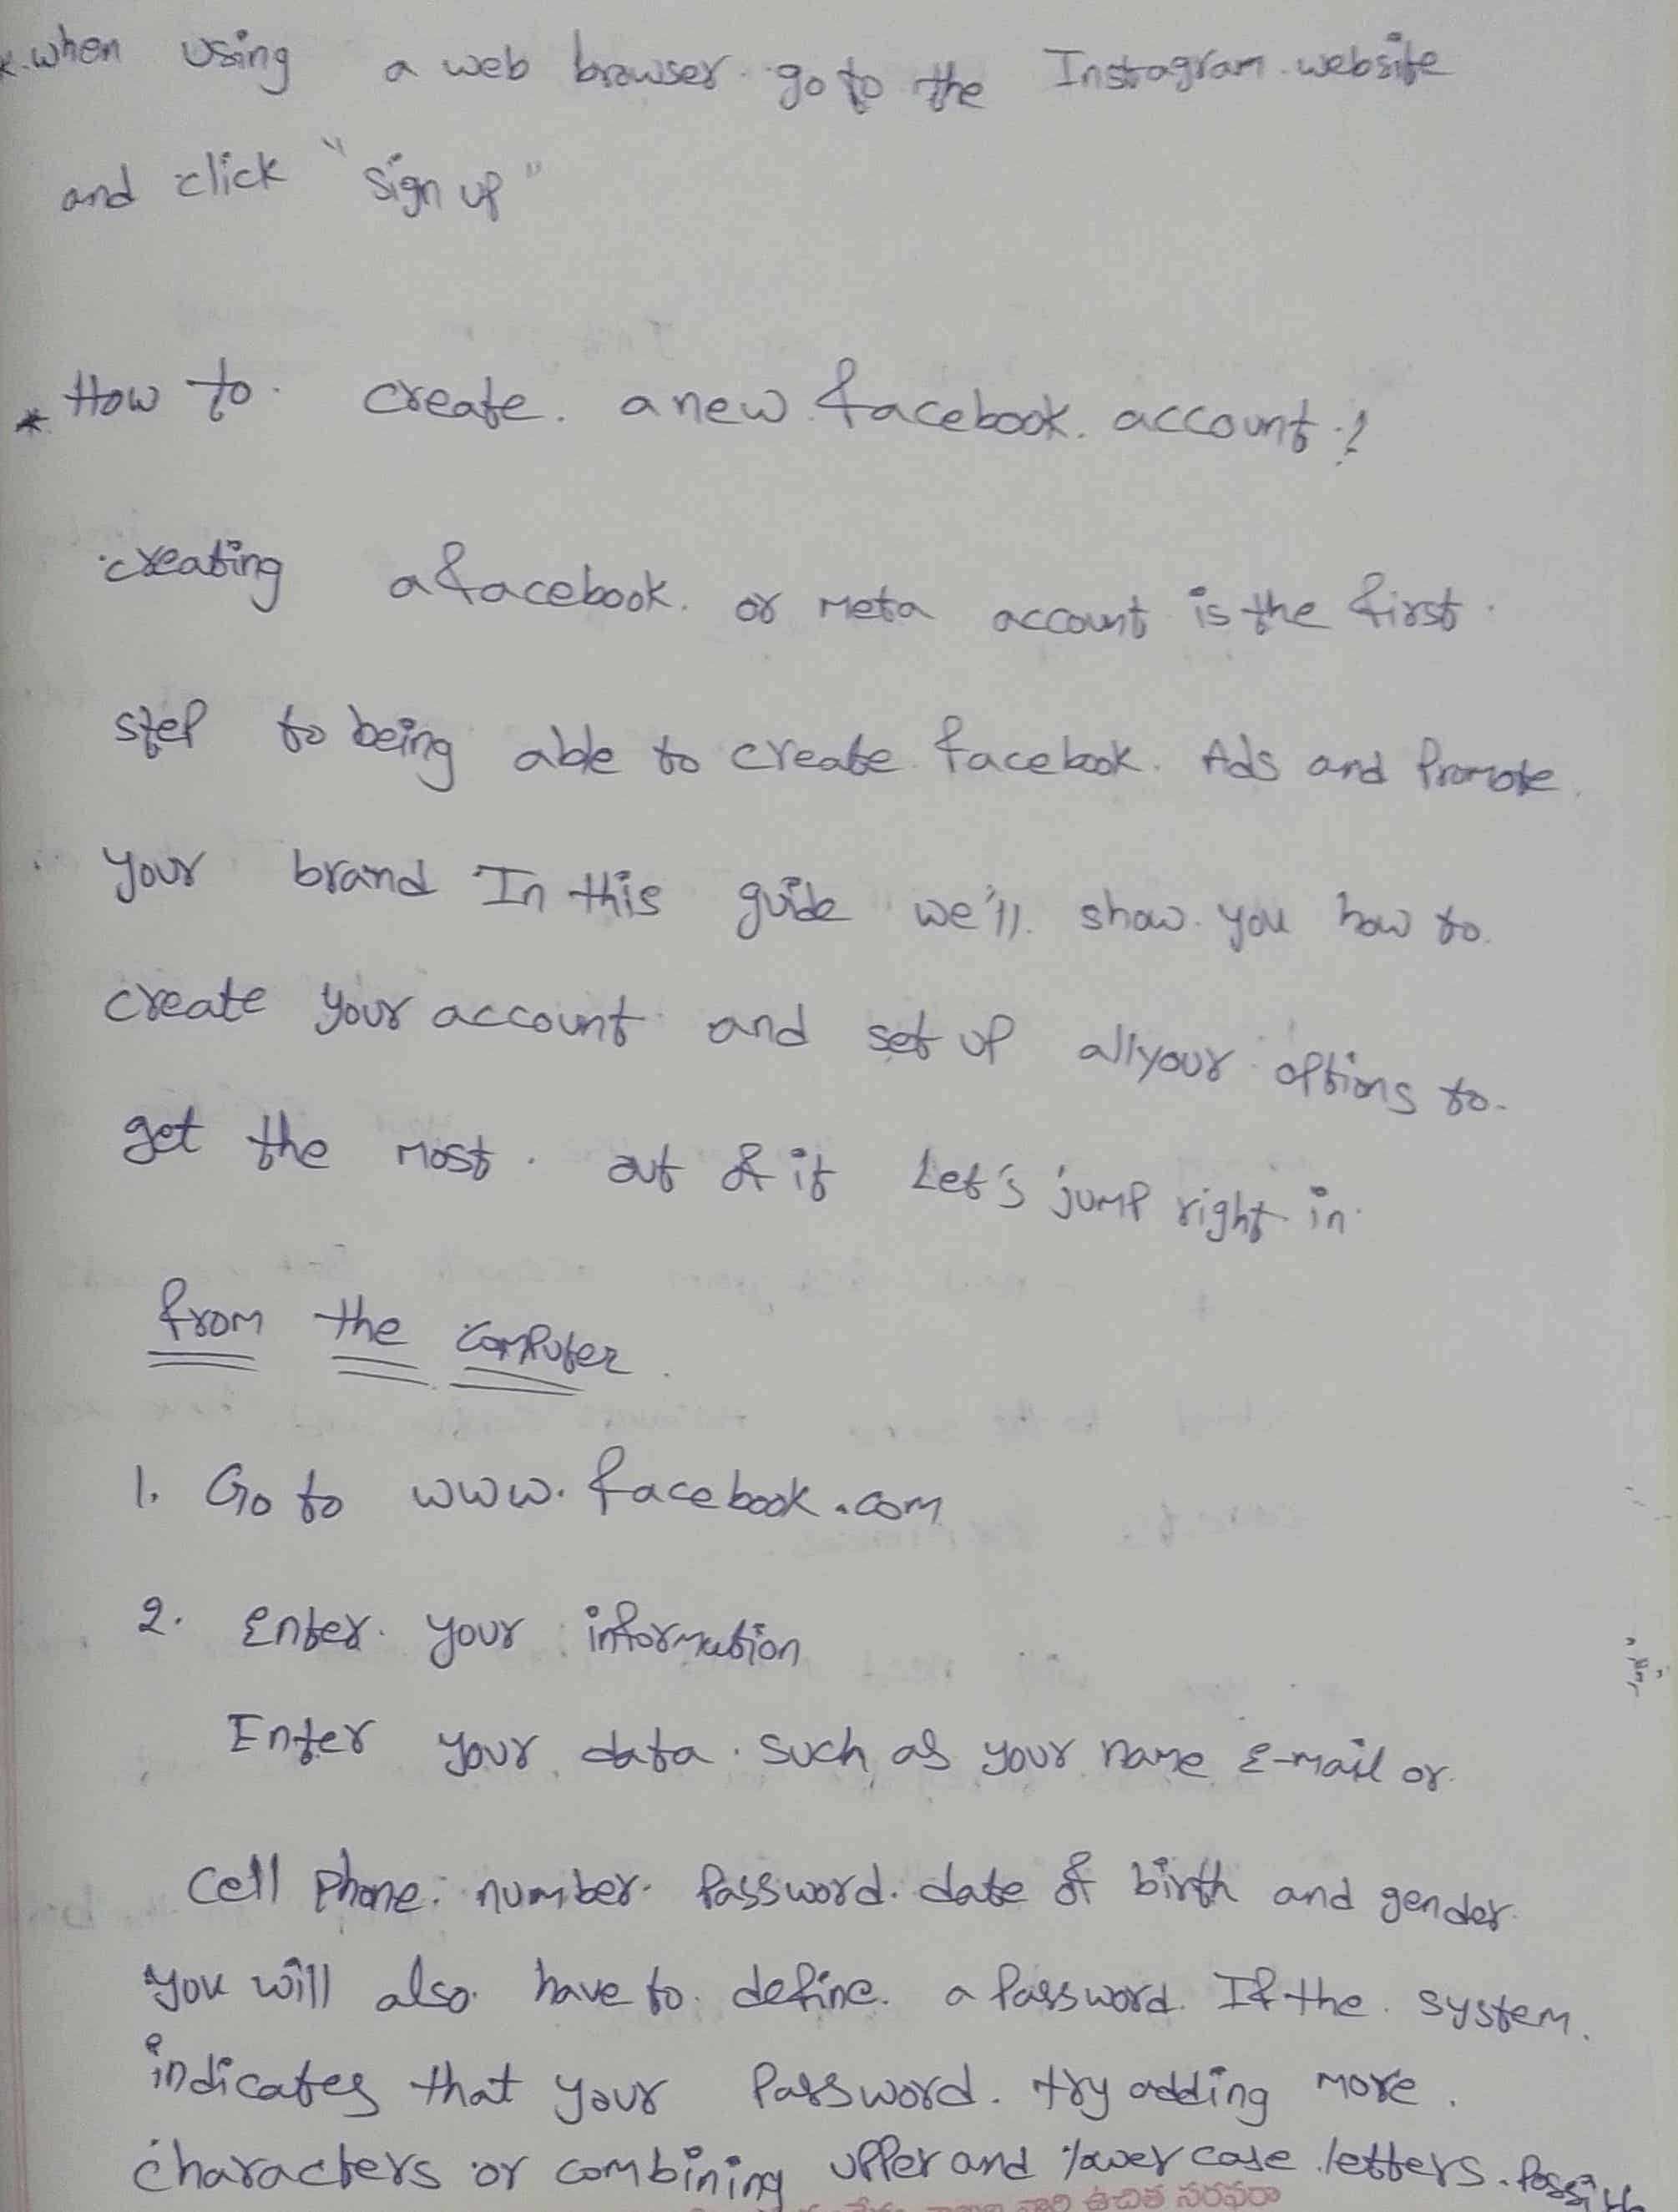 * when using a web browser go to the Instagram website
and click "sign up"
* How to create a new facebook account?
creating a facebook or Meta account is the first
step to being able to create facebook Ads and Promote
your brand In this guide we'll show you how to
create your account and set up all your options to
get the most out of it Let's jump right in
from the computer
1. Go to www.facebook.com
2. Enter your information
Enter your data such as your name E-mail or
cell phone number Password date of birth and gender
you will also have to define a Password If the system
indicates that your Password try adding more
characters or combining upper and lower case letters.
వారి ఉచిత సరఫరా